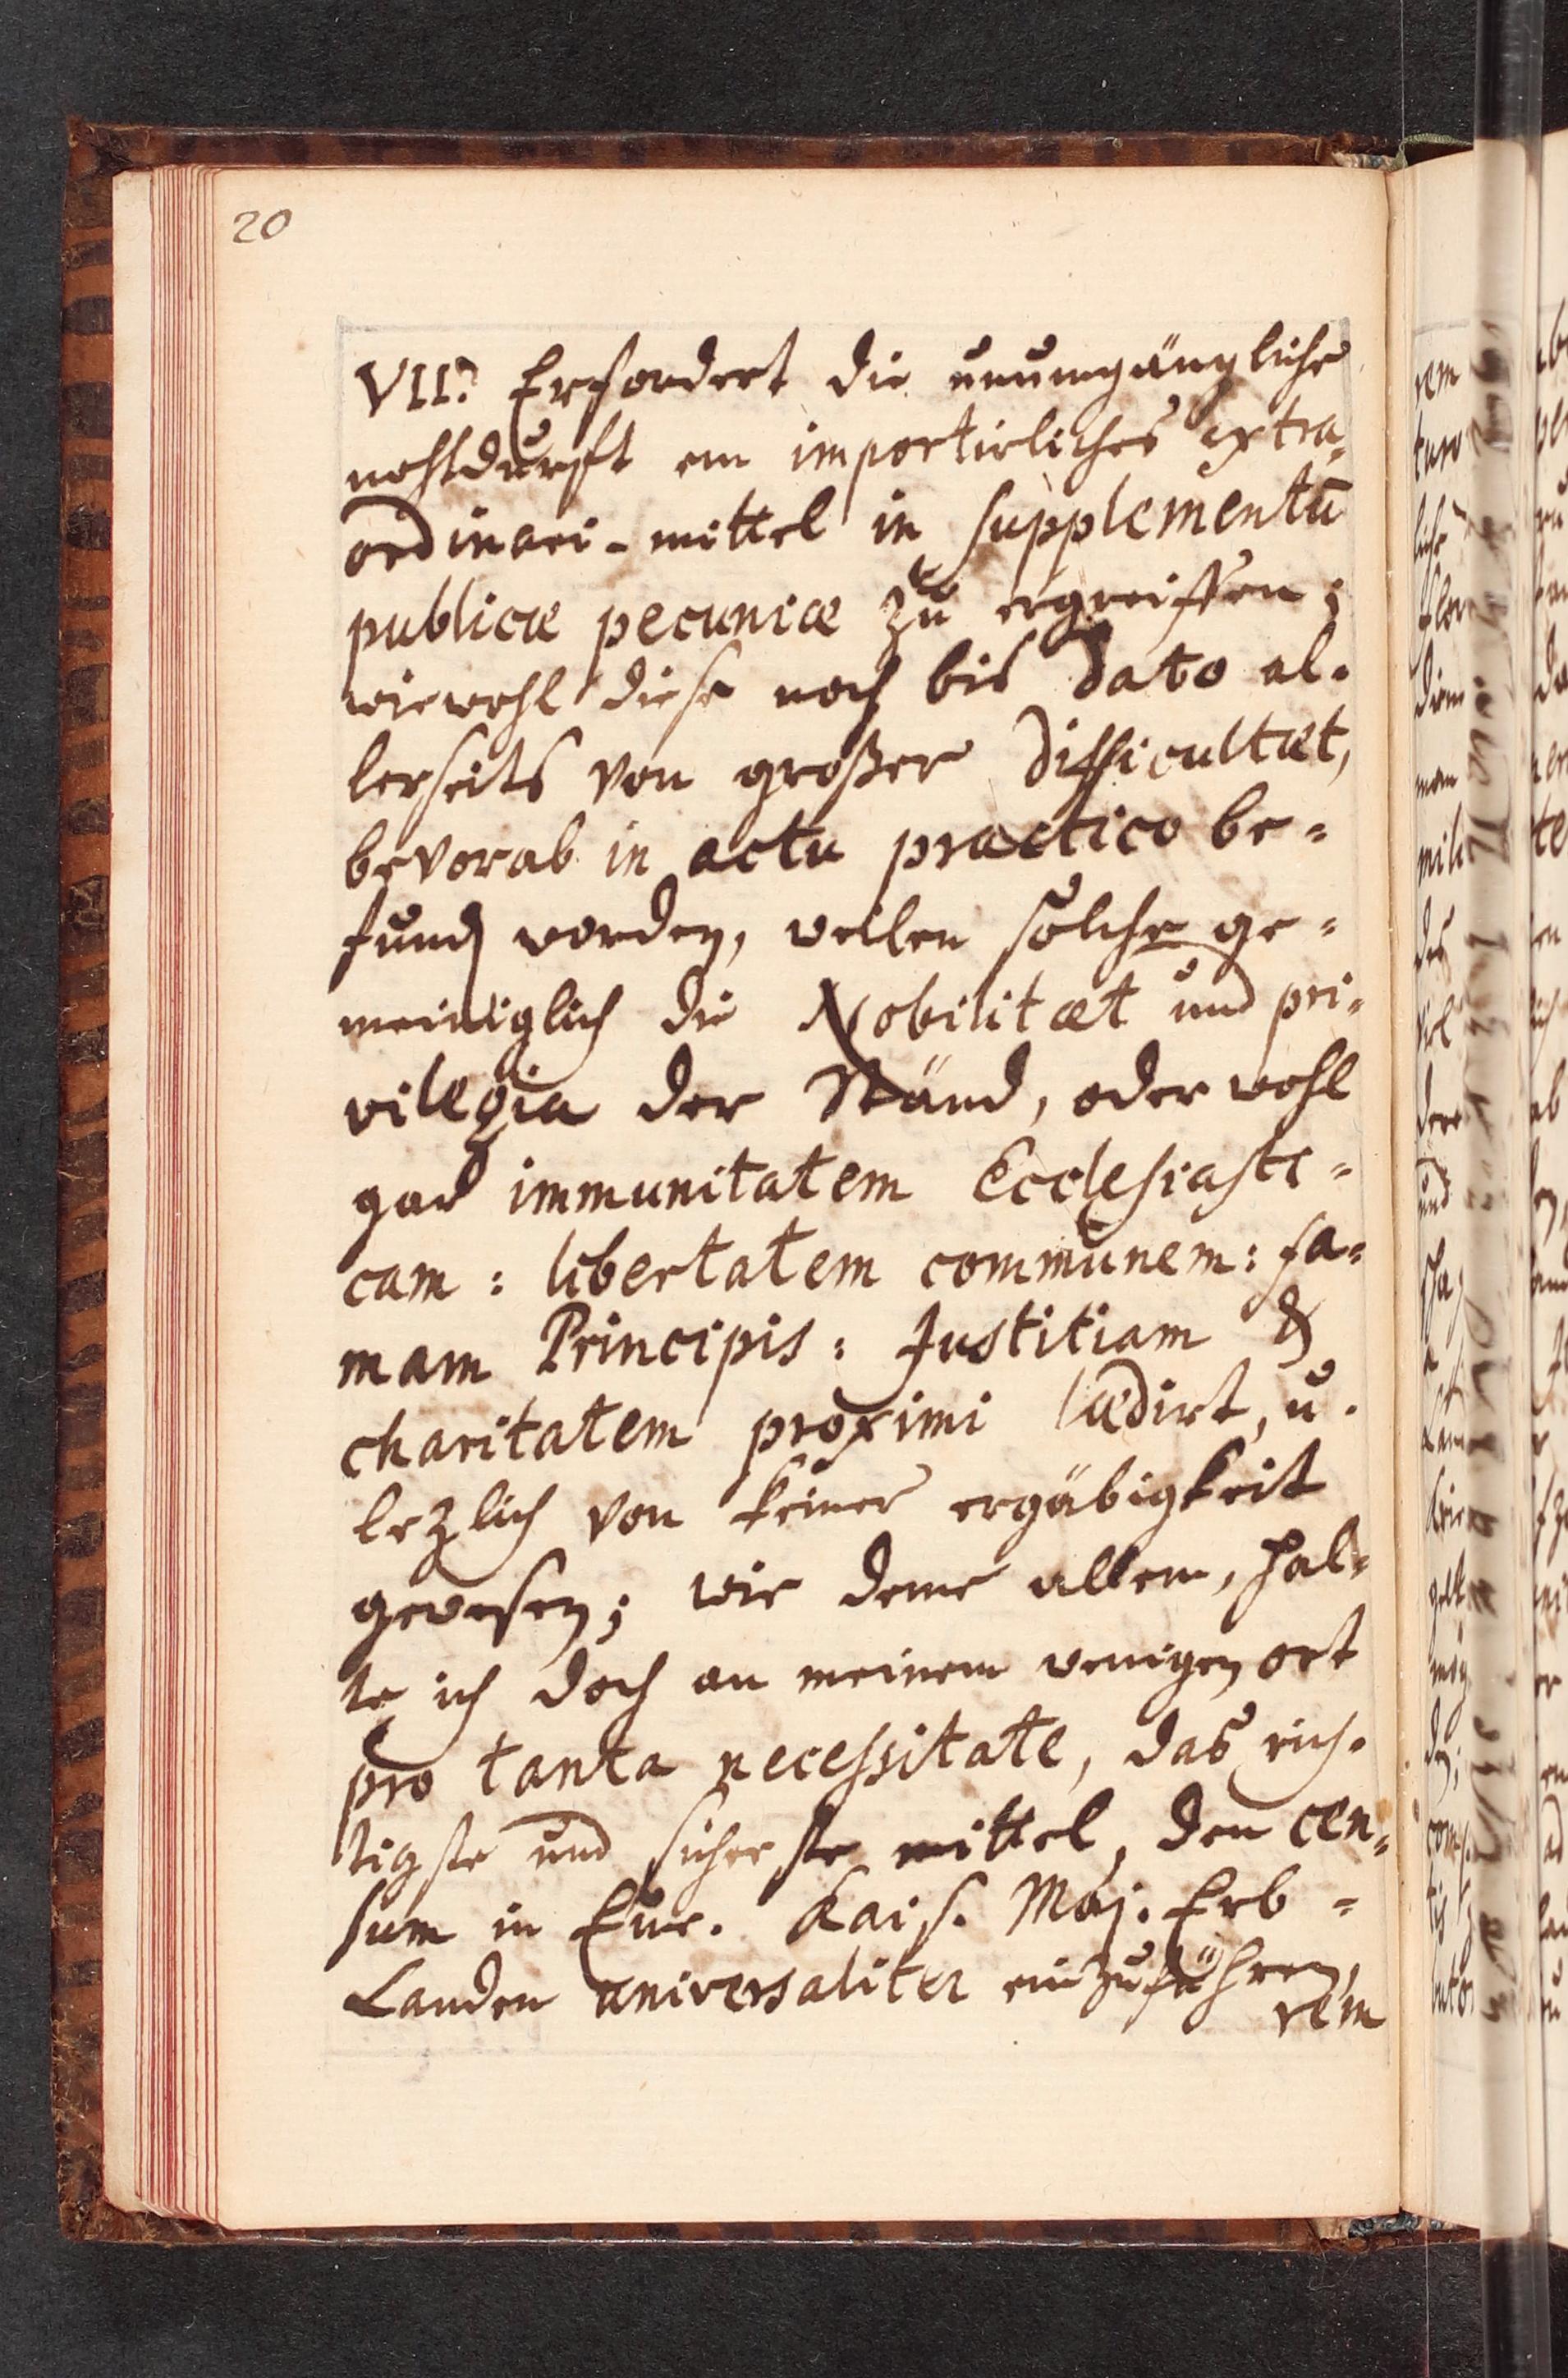 20
VII? Erfordert die unumgängliche
nohtdurfft ein importirliches extra-
ordinari-mittel in supplementū
publicæ pecuniæ zu ergreiffen;
wiewohl diese noch bis dato al-
lerseits von großer Difficultæt,
bevorab in actu practico be-
fund worden, weilen solche ge-
meiniglich die Nobilitæt und pri-
vilegia der Ständ, oder wohl
gar immunitatem Ecclesiasti-
cam: libertatem communem: fa-
mam Principis: Justitiam &
charitatem proximi lædirt, u.
lezlich von keiner ergäbigkeit
gewesen; wie deme allem, hal-
te ich doch an meinem wenigen ort
pro tanta necessitate, das rich-
tigste und sicherste mittel, den cen-
sum in Eur. Kais. Maj. Erb-
Landen universaliter einzuführen,
rem